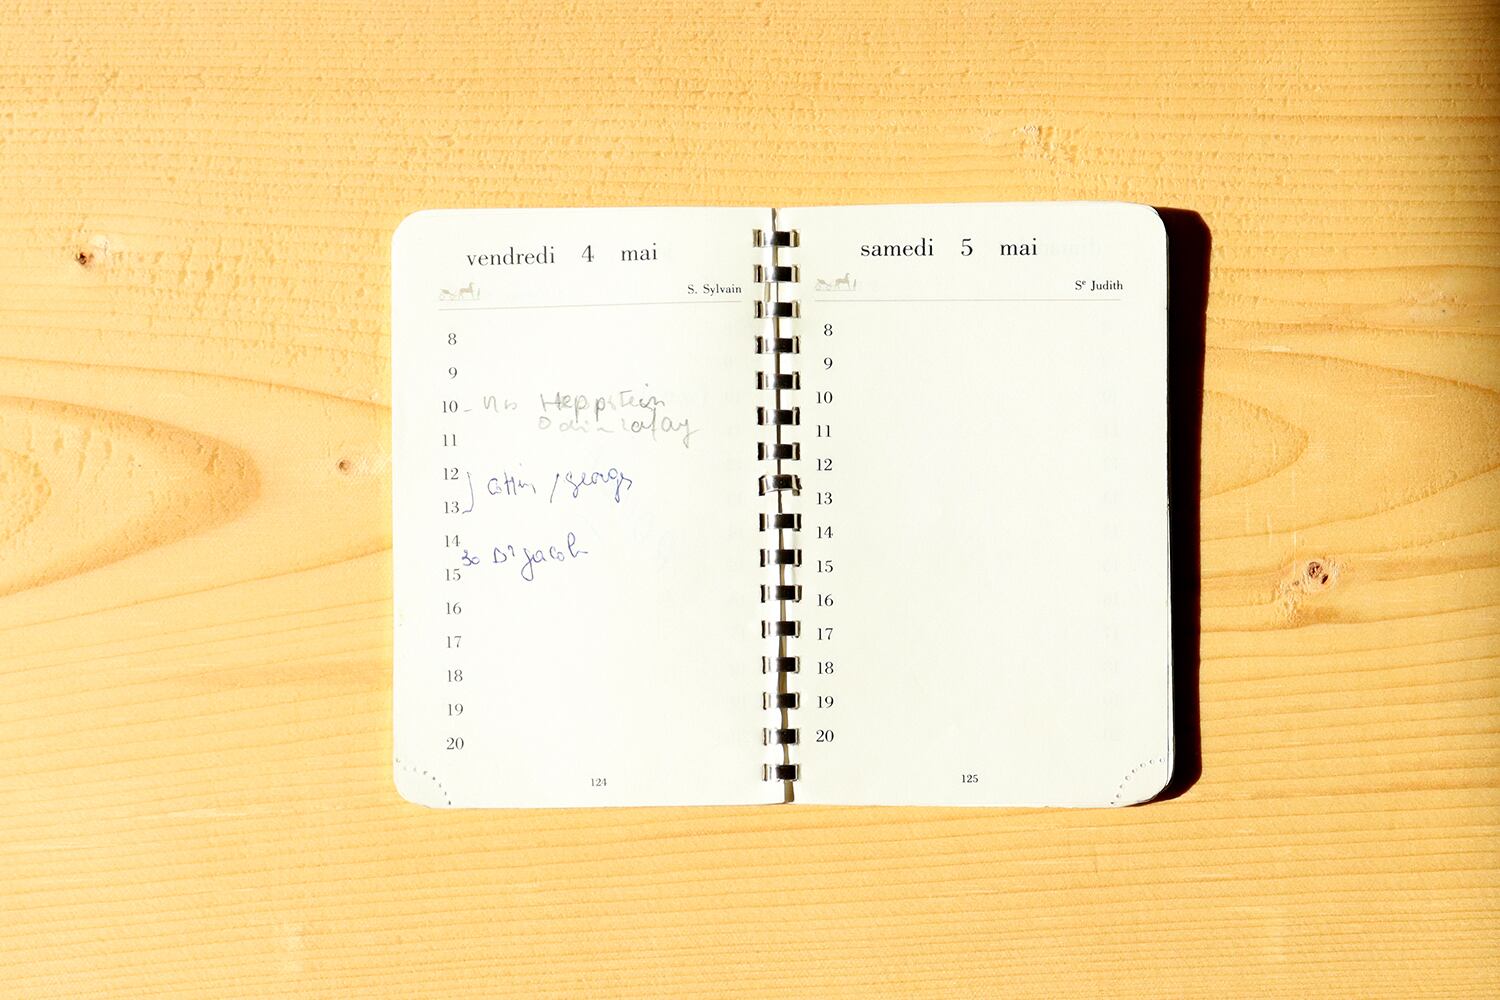 vendredi 4 mai
S. Sylvain
8
9
10 -
11
12
13
14
30 Dr Jacob
15
16
17
18
19
20
124
samedi 5 mai
Se Judith
8
9
10
11
12
13
14
15
16
17
18
19
20
125